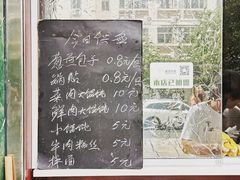 今日供应
葱煎包子 0.8元/个
锅贴 0.8元/个
菜肉大馄饨 10元
鲜肉大馄饨 10元
小馄饨 5元
牛肉粉丝 5元
5元
本店已加盟